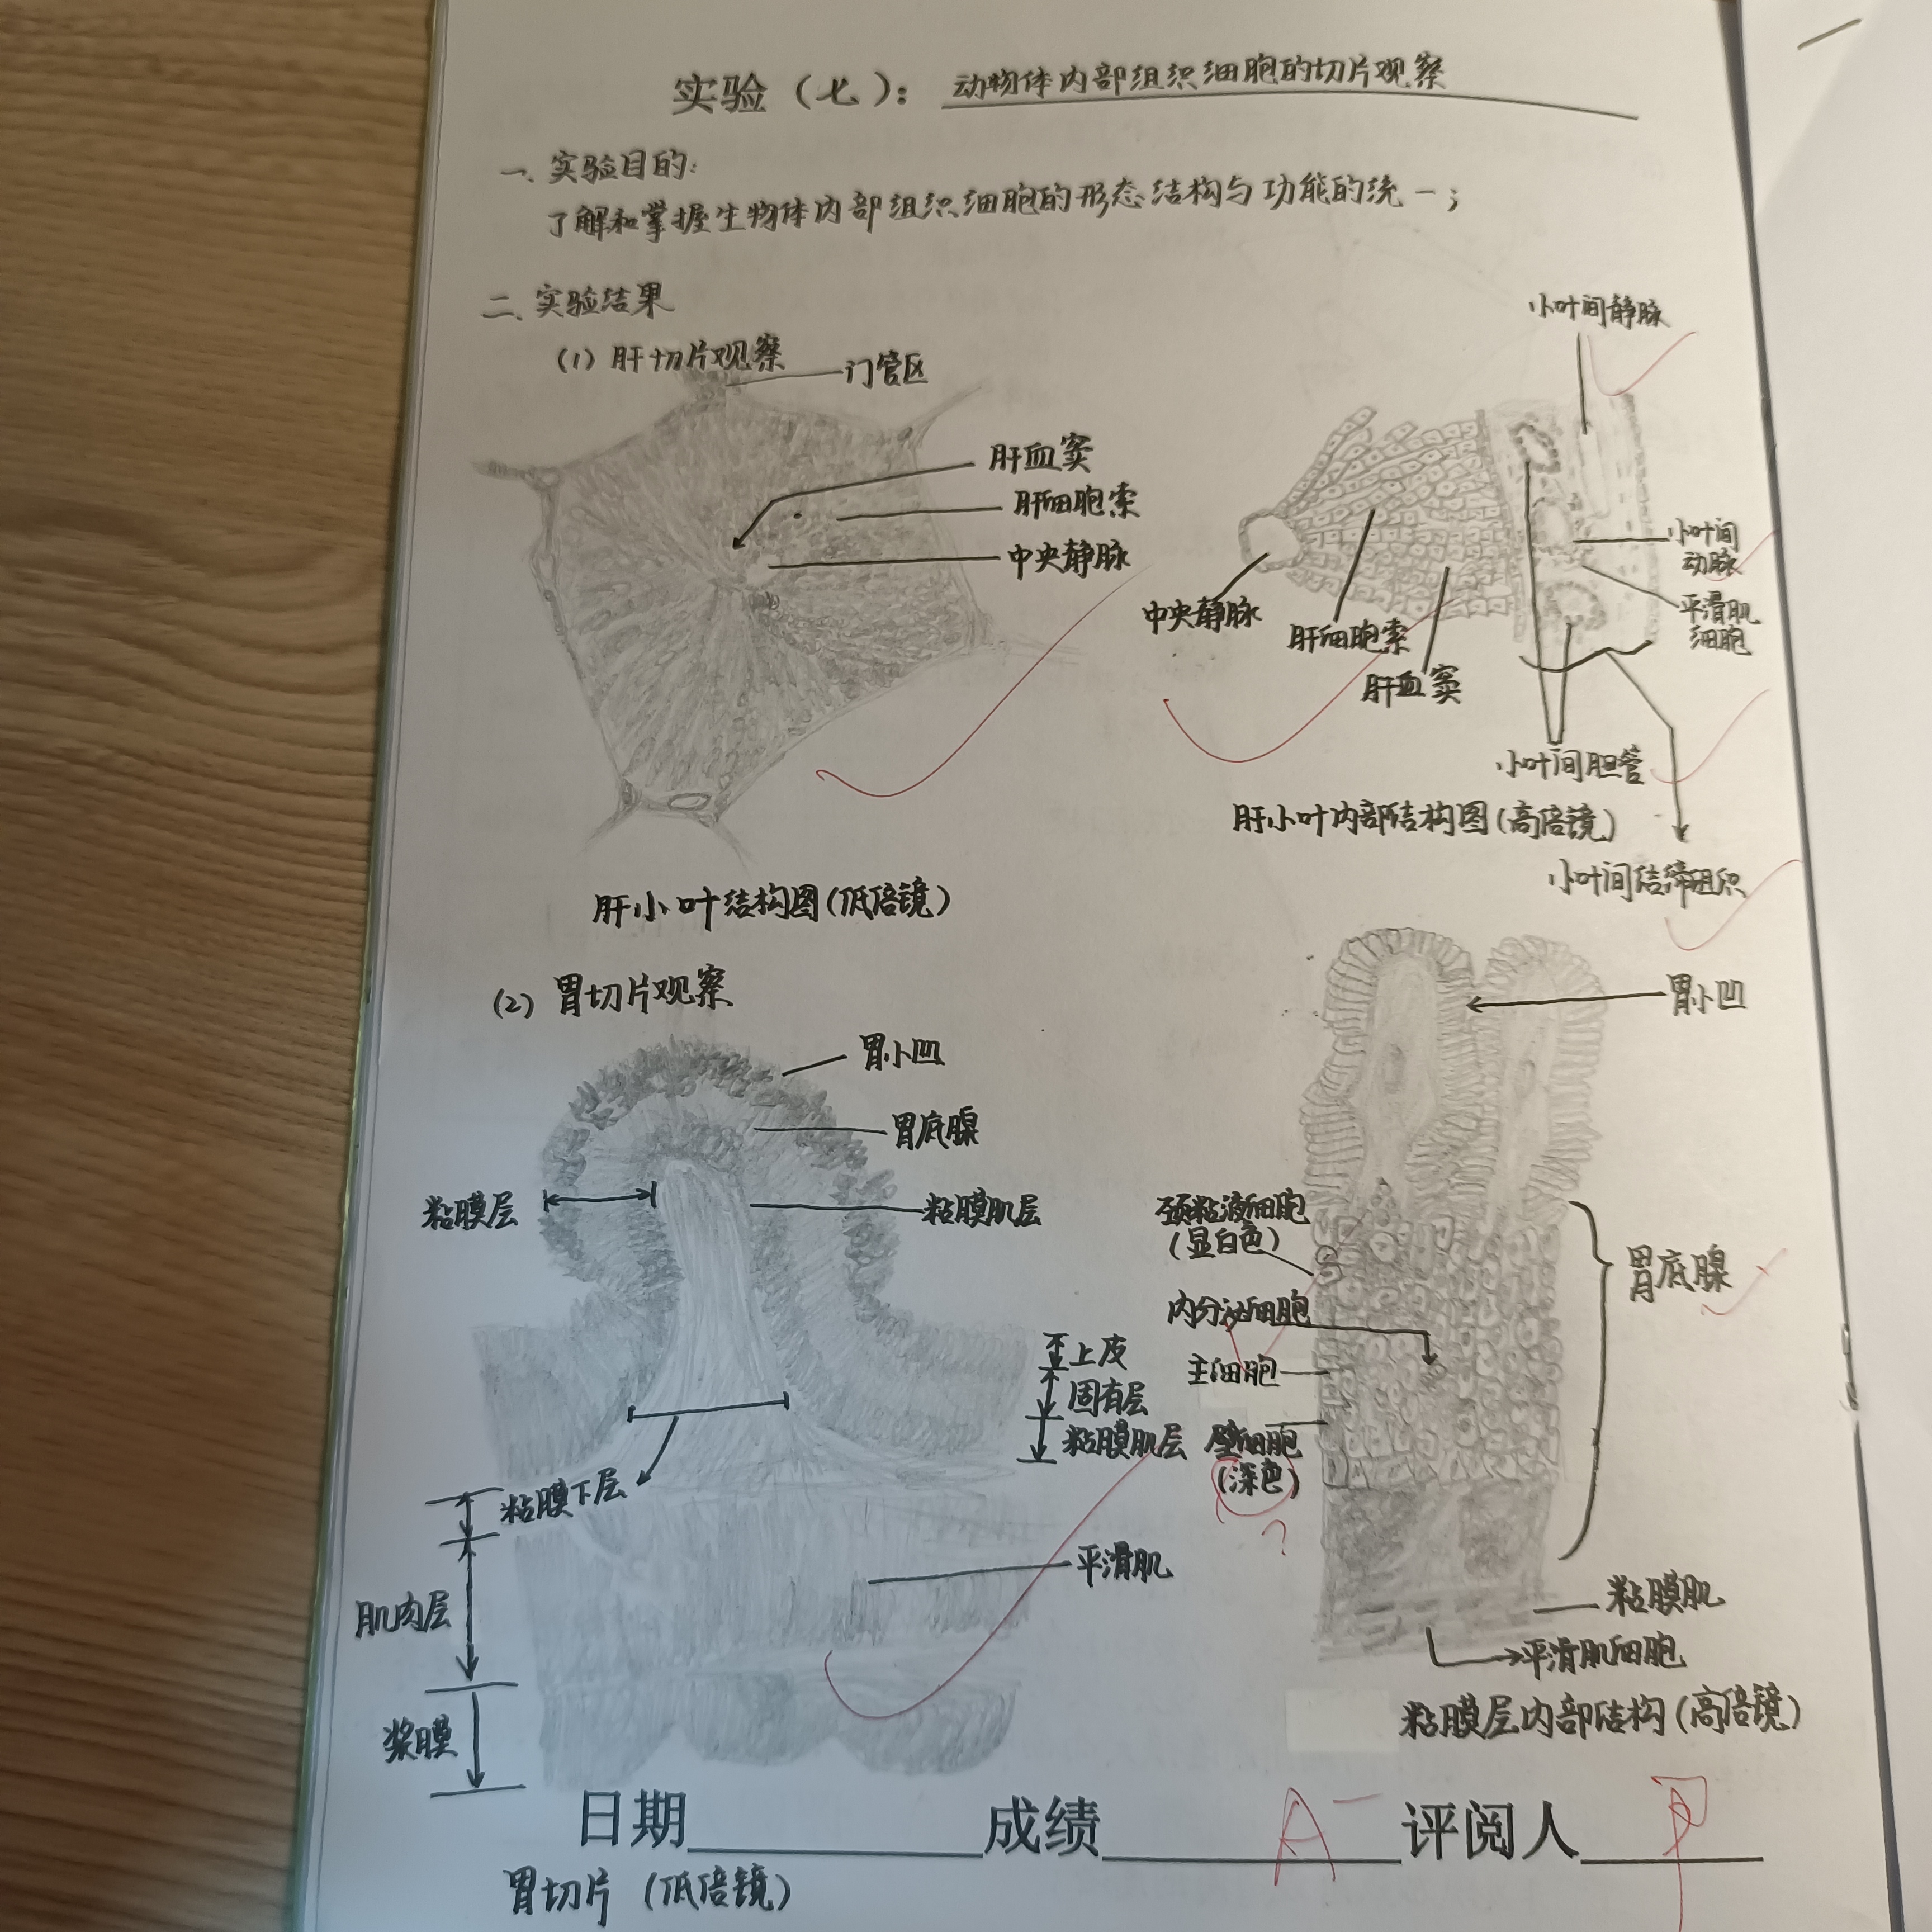 实验（七）：动物体内部组织细胞的切片观察
一、实验目的：
了解和掌握生物体内部组织细胞的形态结构与功能的统一；
二、实验结果
(1) 肝切片观察
门管区
肝血窦
肝细胞索
中央静脉
肝小叶结构图(低倍镜)
小叶间静脉
小叶间
动脉
平滑肌
细胞
中央静脉
肝细胞索
肝血窦
小叶间胆管
肝小叶内部结构图(高倍镜)
小叶间结缔组织
(2) 胃切片观察
胃小凹
胃底腺
粘膜层
粘膜肌层
上皮
固有层
粘膜肌层
粘膜下层
肌肉层
平滑肌
浆膜
胃小凹
颈粘液细胞
(显白色)
内分泌细胞
主细胞
壁细胞
(深色)
?
胃底腺
粘膜肌
平滑肌细胞
粘膜层内部结构(高倍镜)
日期 成绩 A- 评阅人
胃切片 (低倍镜)